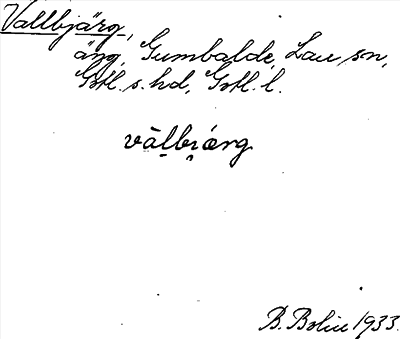 Vallbjärg,
äng, Gumbalde, Lau sn,
Gotl. s. hd, Gotl. l.
vālbi̯ærg
B. Bolin 1933.